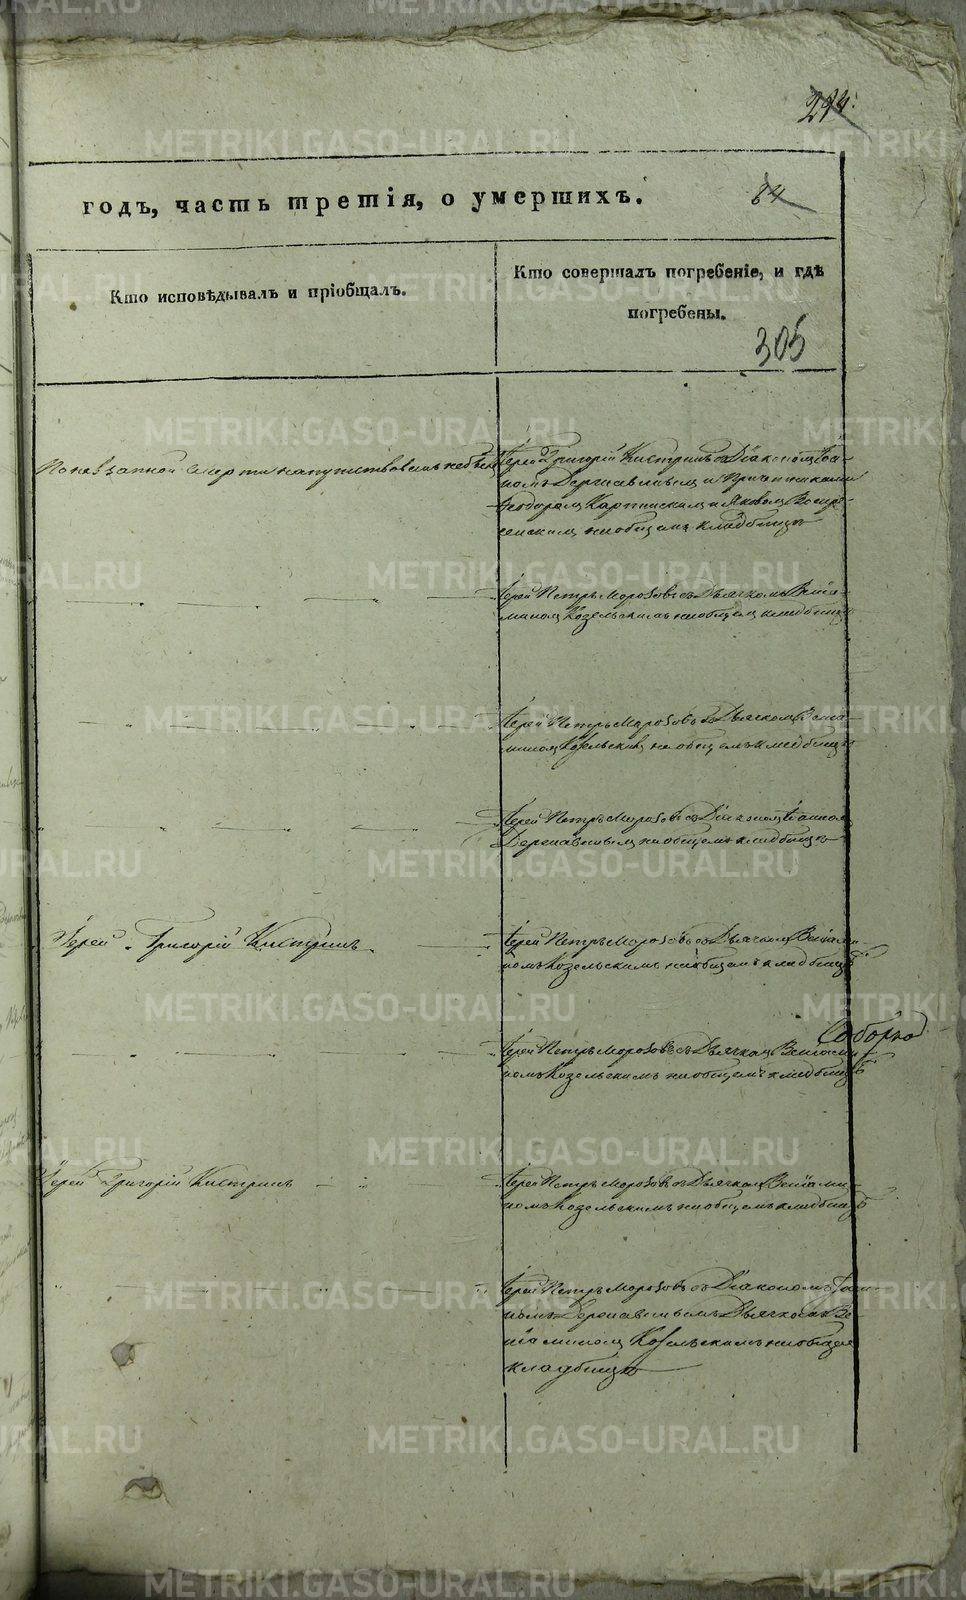 274.
годъ, часть третія, о умершихъ.
84
Кто исповѣдывалъ и пріобщалъ.
Кто совершалъ погребеніе, и гдѣ
погребены.
305
По невзапной смерти напутствованъ небылъ
Іерей Григорій Кистринъ съ Діакономъ Іоан-
номъ Державинымъ и Причетниками
Ѳеодоромъ и Яковомъ Воскре-
сенскимъ на общемъ кладбищѣ
Іерей Петръ Морозовъ съ Дьячкомъ Веніа-
миномъ Козельскимъ на общемъ кладбищѣ
Іерей Петръ Морозовъ съ Дьячкомъ Веніа-
миномъ Козельскимъ на общемъ кладбищѣ
Іерей Петръ Морозовъ съ Діакономъ Іоанномъ
Державинымъ на общемъ кладбищѣ
Іерей Григорій Кистринъ
Іерей Петръ Морозовъ съ Дьячкомъ Веніами-
номъ Козельскимъ на общемъ кладбищѣ
Соборно
Іерей Петръ Морозовъ съ Дьячкомъ Веніами-
номъ Козельскимъ на общемъ кладбищѣ
Іерей Григорій Кистринъ
Іерей Петръ Морозовъ съ Дьячкомъ Веніами-
номъ Козельскимъ на общемъ кладбищѣ
Іерей Петръ Морозовъ съ Діакономъ Іоан-
номъ Державинымъ Дьячкомъ Ве-
ніаминомъ Козельскимъ на общемъ
кладбищѣ
METRIKI.GASO-URAL.RU